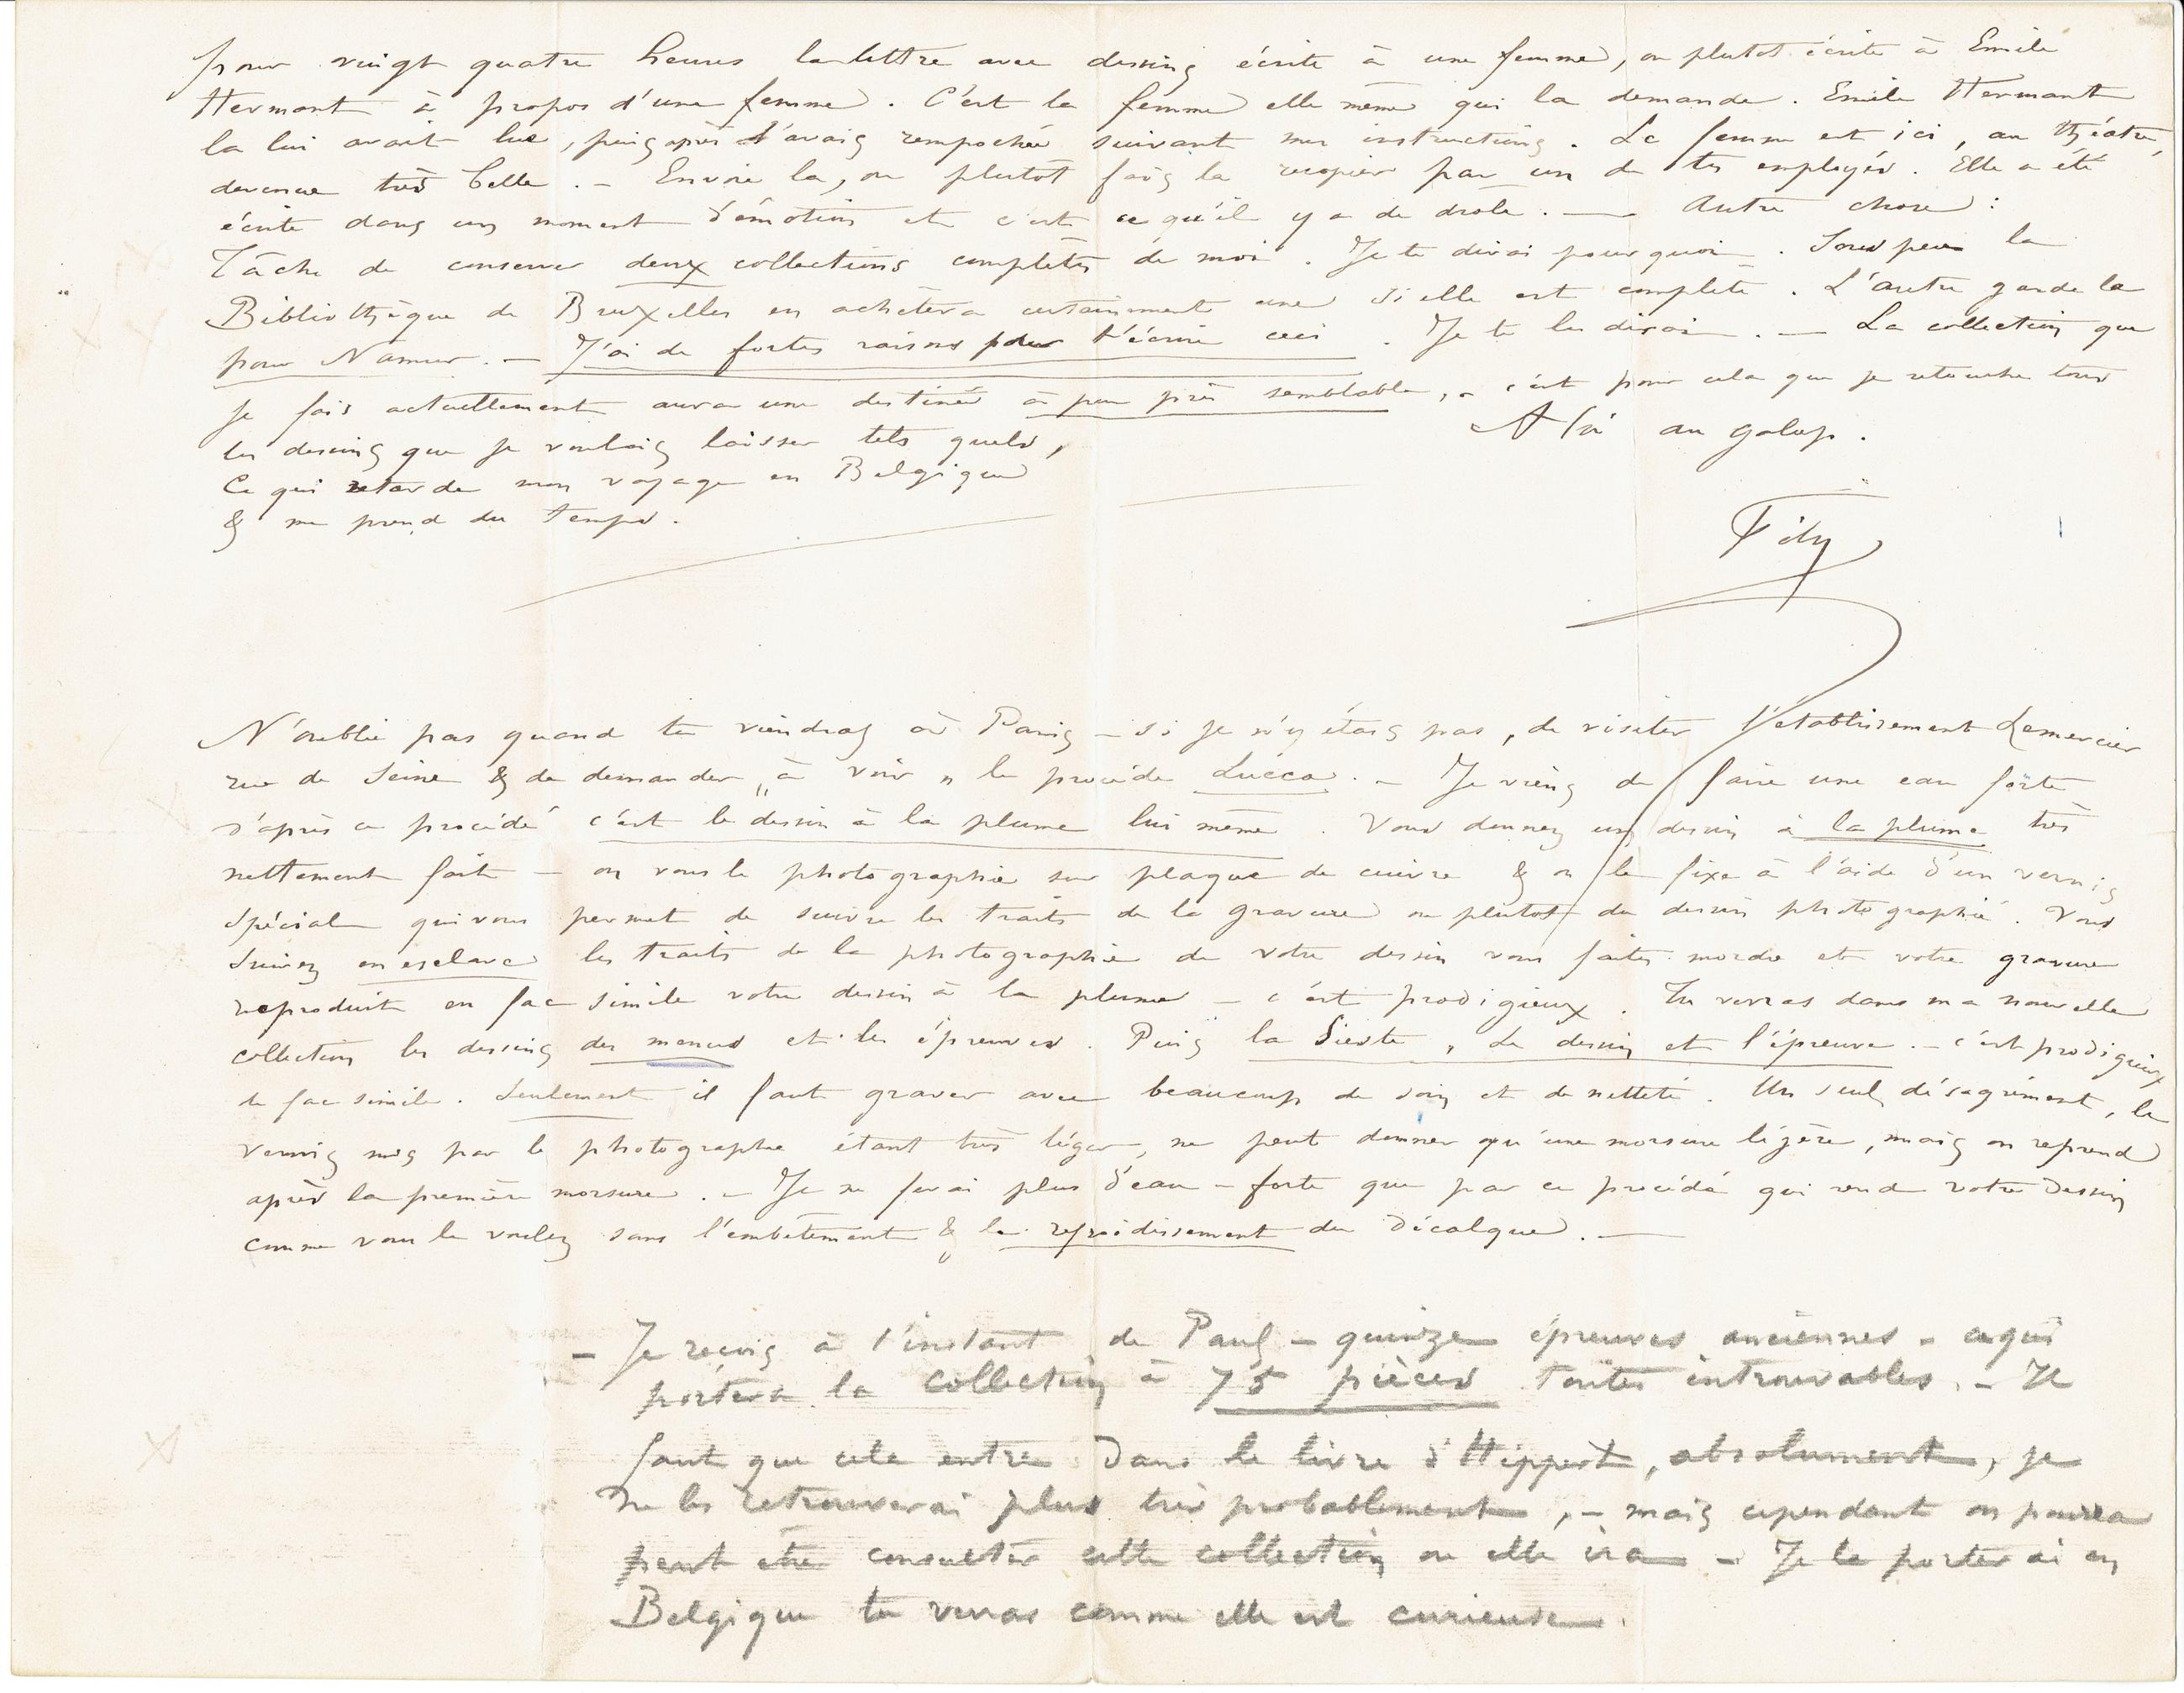 pour vingt quatre heures la lettre avec dessins écrite à une femme, ou plutot écrite à Emile
Hermant à propos d'une femme. C'est la femme elle même qui la demande. Emile Hermant
la lui avait lue, puis après l'avais rempochée suivant mes instructions. La femme est ici, au théatre,
devenue très belle. – Envoie la, ou plutôt fais la recopier par un de tes employés. Elle a été
écrite dans un moment d'émotion et c'est ce qu'il y a de drole. — Autre chose:
Tâche de conserver deux collections complètes de moi. Je te dirai pourquoi. Sous peu la
Bibliothèque de Bruxelles en achètera certainement une si elle est complète. L'autre garde la
pour Namur. – J'ai de fortes raisons pour t'écrire ceci. Je te les dirai. — La collection que
je fais actuellement aura une destinée à peu près semblable, – c'est pour cela que je retouche tous
les dessins que je voulais laisser tels quels,
Ce qui retarde mon voyage en Belgique
& me prend du temps.
A toi au galop.
Fély
N'oublie pas quand tu viendras à Paris – si je n'y étais pas, de visiter l'établissement Lemercier
rue de Seine & de demander „à voir„ le procédé Lucca. – Je viens de faire une eau forte
d'après ce procédé c'est le dessin à la plume lui même. Vous donnez un dessin à la plume très
nettement fait – on vous le photographie sur plaque de cuivre & on le fixe à l'aide d'un vernis
spécial qui vous permet de suivre les traits de la gravure ou plutot du dessin photographié. Vous
suivez en esclave les traits de la photographie de votre dessin vous faites mordre et votre gravure
reproduit en fac simile votre dessin à la plume – c'est prodigieux. Tu verras dans ma nouvelle
collection les dessins des menus et les épreuves. Puis la Sieste, Le dessin et l'épreuve. – c'est prodigieux
de fac simile. Seulement il faut graver avec beaucoup de soin et de netteté. Un seul désagrément, le
vernis mis par le photographe étant très léger, ne peut donner qu'une morsure légère, mais on reprend
après la première morsure. – Je ne ferai plus d'eau-forte que par ce procédé qui rend votre dessin
comme vous le voulez sans l'embêtement & le refroidissement du décalque. —
– Je reçois à l'instant de Paul – quinze épreuves anciennes – ce qui
portera la collection à 75 pièces toutes introuvables. – Il
faut que cela entre dans le livre d'Hippert, absolument, je
ne les retrouverai plus très probablement, – mais cependant on pourra
peut etre consulter cette collection ou elle ira – Je la porterai en
Belgique tu verras comme elle est curieuse.